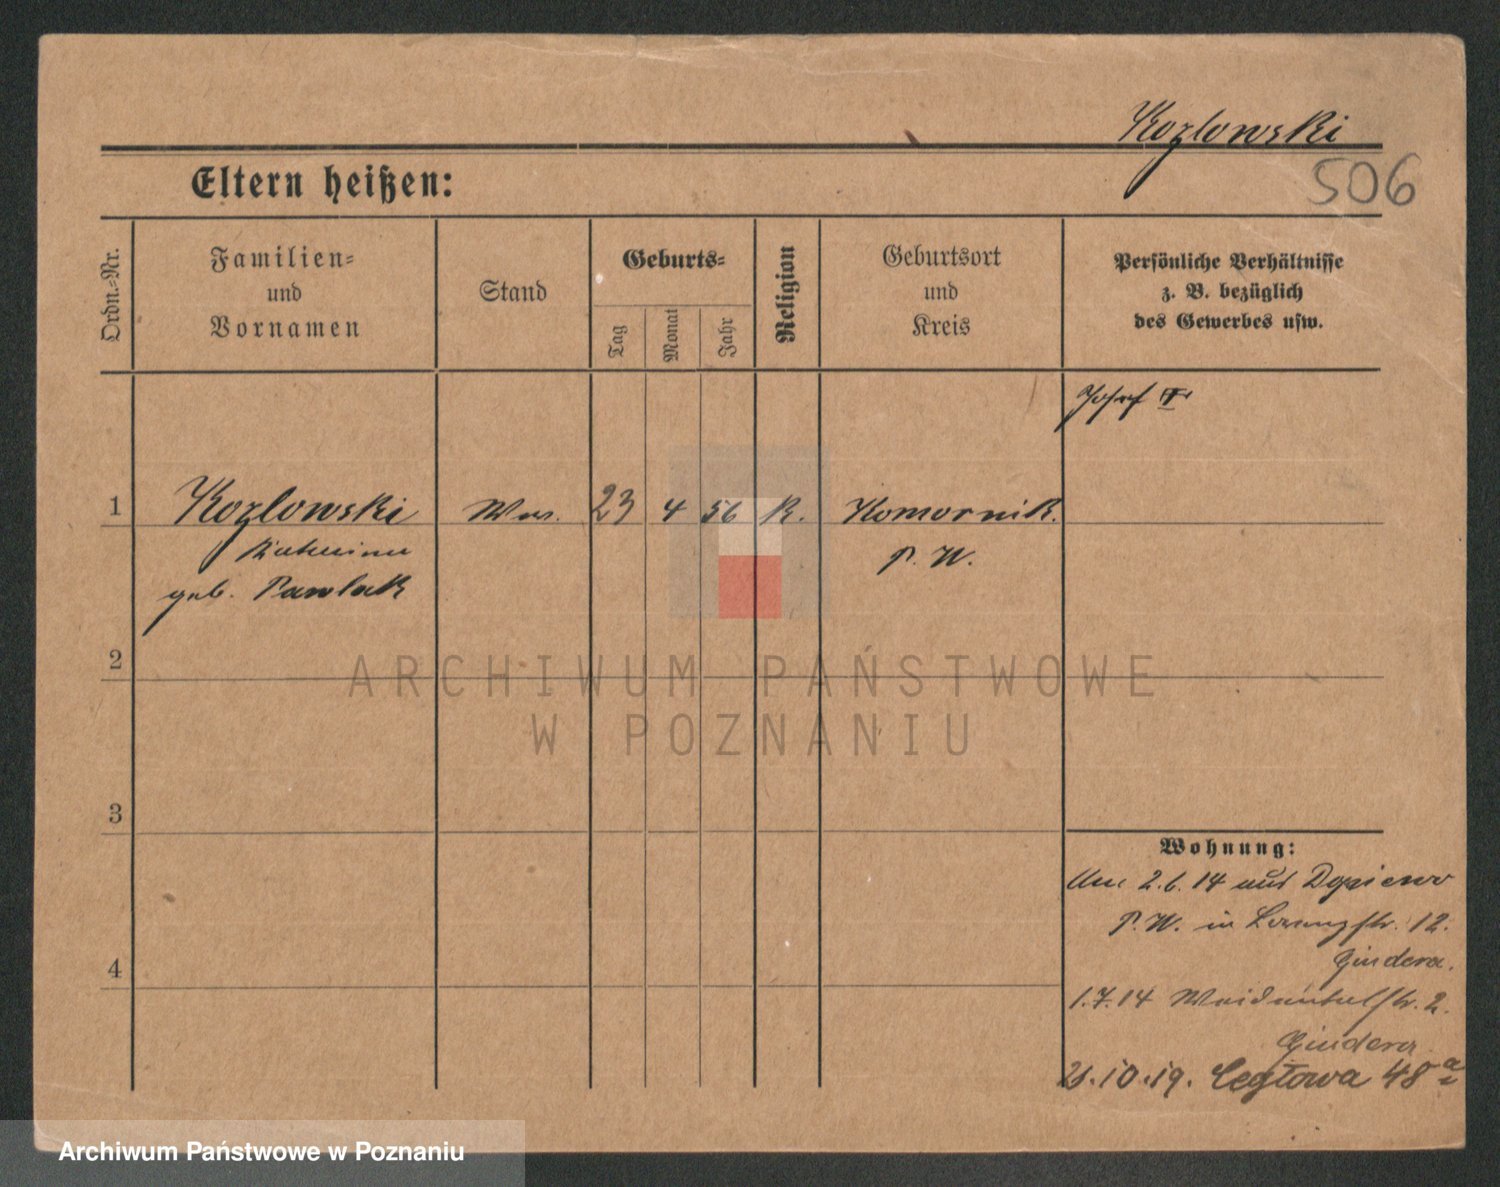 Kozlowski
506
Eltern heißen:
Ordn.-Nr.
Familien-
und
Vornamen
Stand
Geburts-
Tag
Monat
Jahr
Religion
Geburtsort
und
Kreis
Persönliche Verhältnisse
z. B. bezüglich
des Gewerbes usw.
Josef
1 Kozlowski Ww. 23 4 56 K. Komornik
P. W.
geb. Pawlak
2
ARCHIWUM PAŃSTWOWE
W POZNANIU
3
4
Wohnung:
Am 2.6.14 aus Dopiewo
P. W. in 12.
1.7.14 2.
21.10.19. Ceglowa 48a
Archiwum Państwowe w Poznaniu